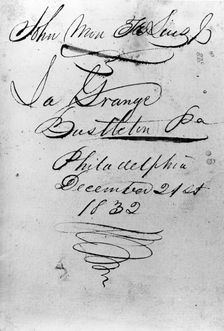 John
La Grange
Bustleton Pa
Philadelphia
December 21st
1832